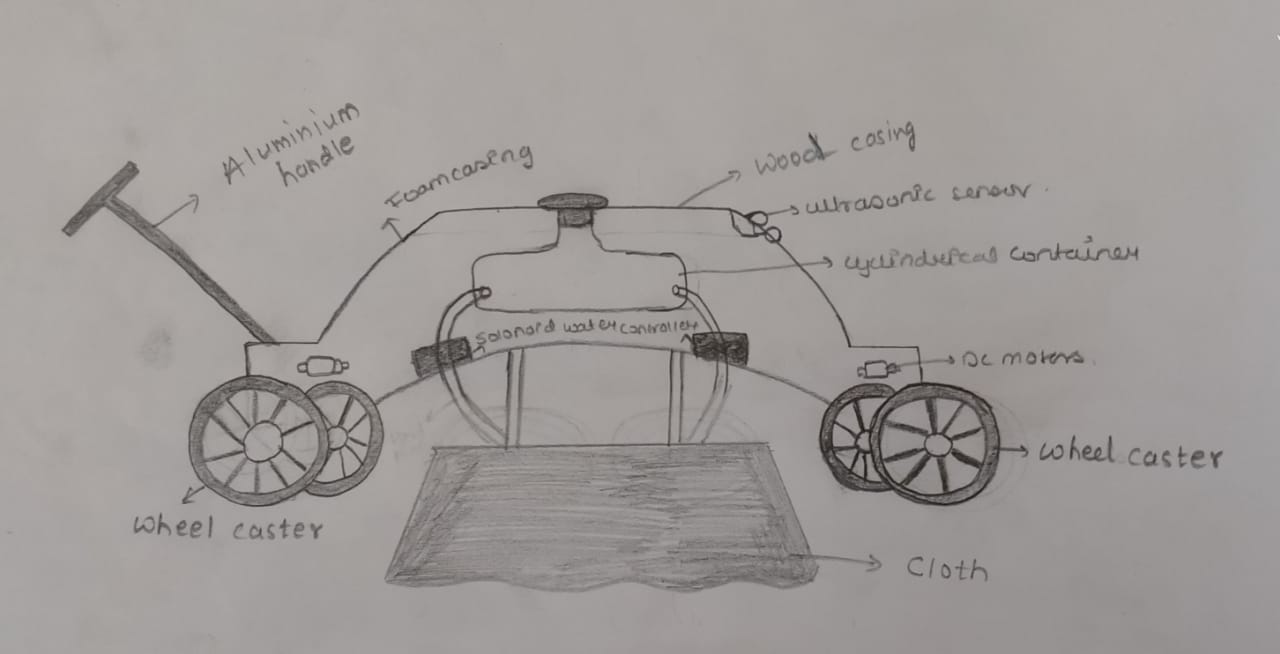 Aluminium
handle
Foamcasing
Wood casing
ultrasonic sensor.
cylindrical container
Solonoid water controller
DC motors.
Wheel caster
Wheel caster
Cloth